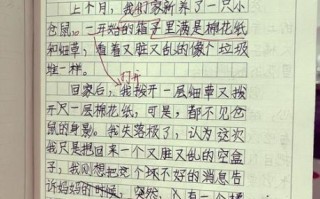 上个月，我们家新养了一只小
仓鼠。一开始的箱子里满是棉花纸
和细草，看着又脏又乱的像个垃圾
堆一样。
回家后，我拨开一层细草又拨
开尺一层棉花纸，可是，都不见仓
鼠的身影。我失落极了，认为这次
我只是把回来一个又脏又乱的空盒
子，我刚想把这个坏不好的消息告
诉妈妈的时候，突然，有一个橘